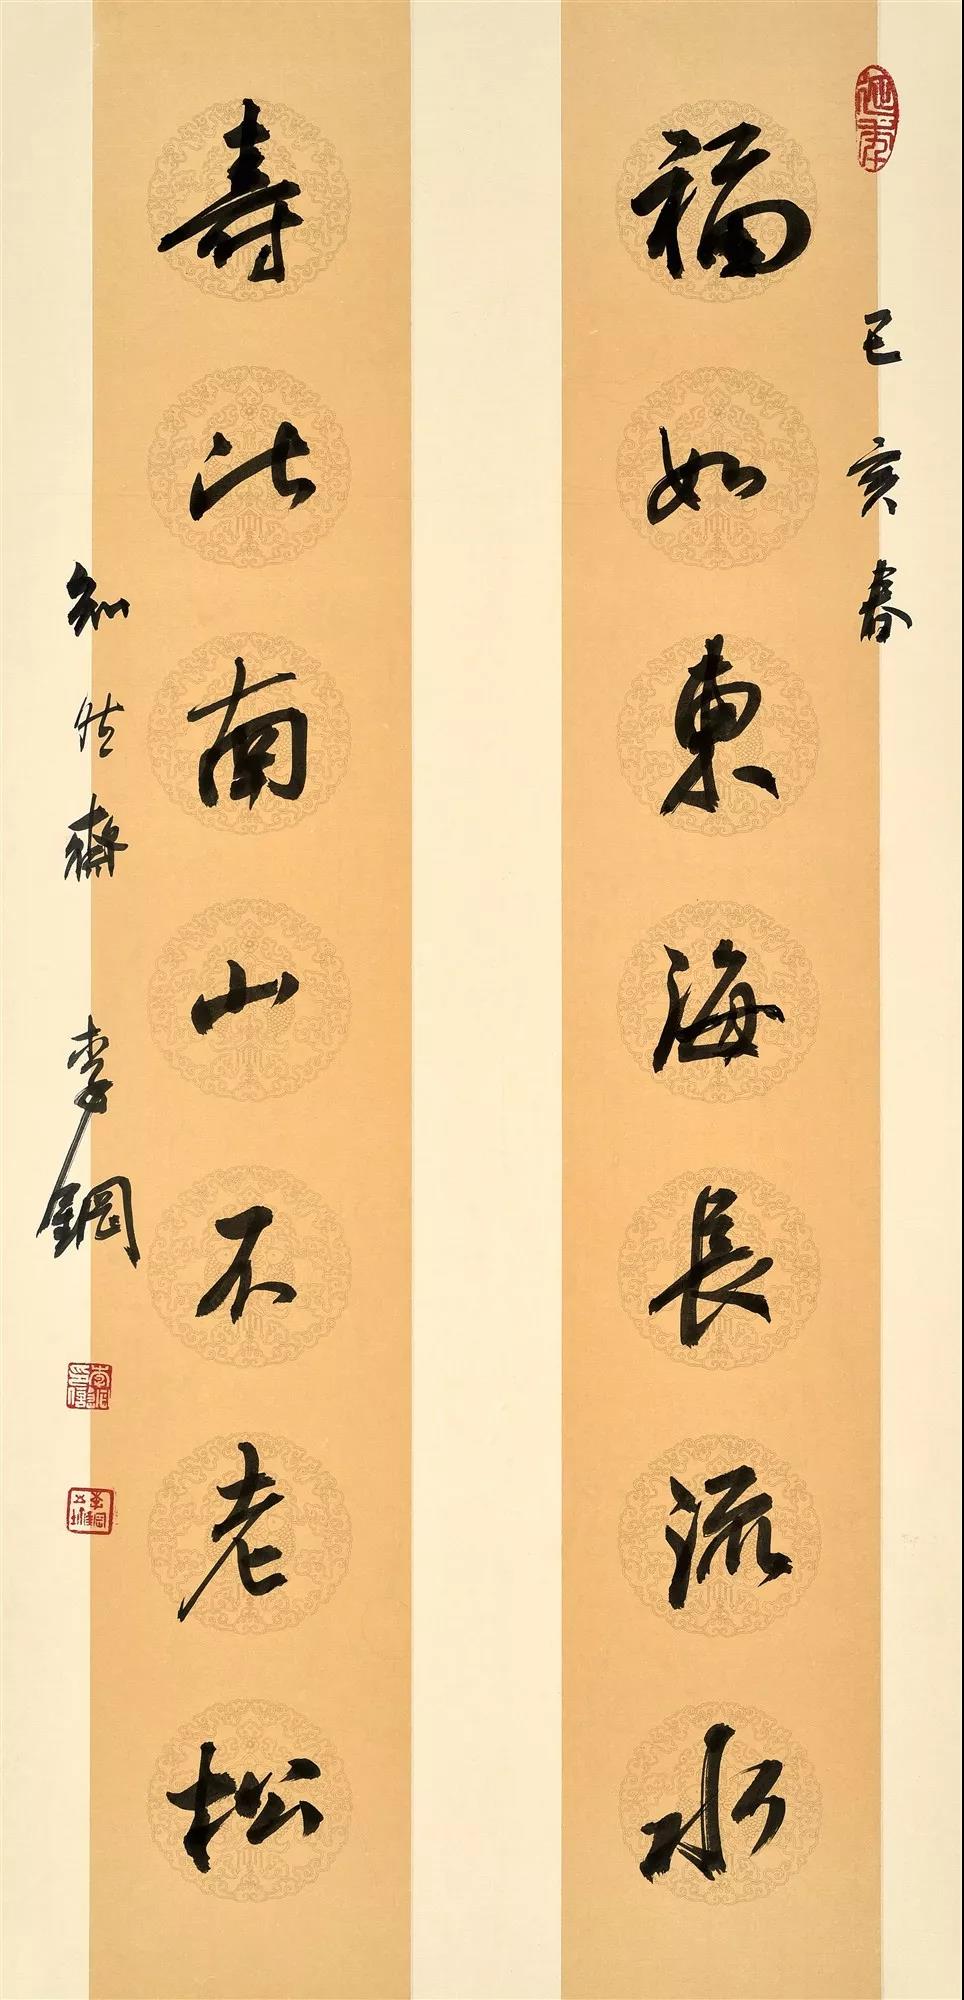 己亥春
福如東海長流水
壽比南山不老松
知然齋 李鋼